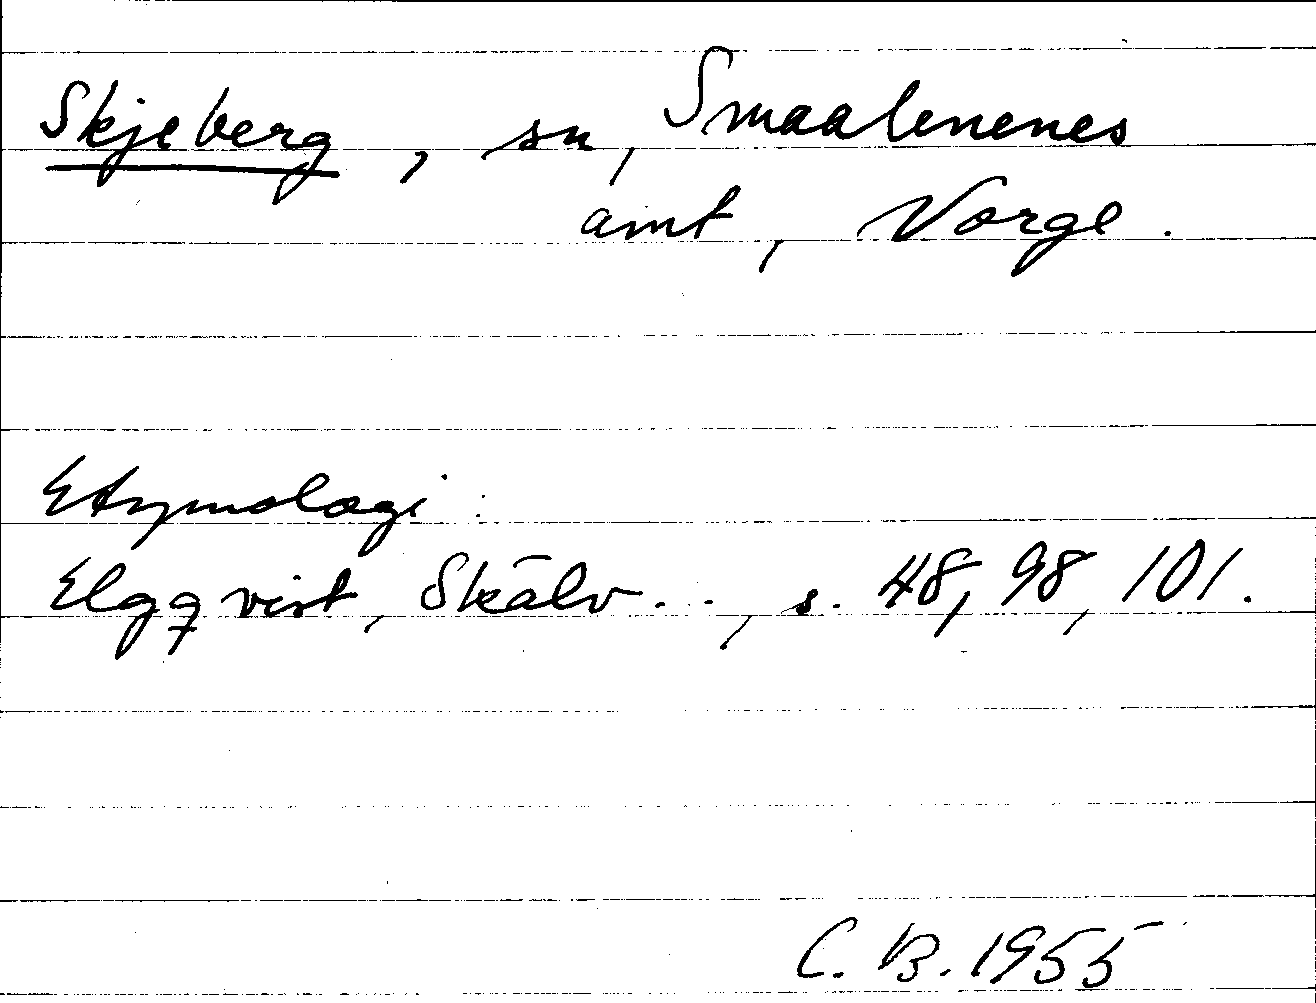 Skjeberg, sn, Smaalenenes
amt, Norge.
Etymologi:
Elgqvist, Skälv..., s. 48, 98, 101.
C. B. 1955